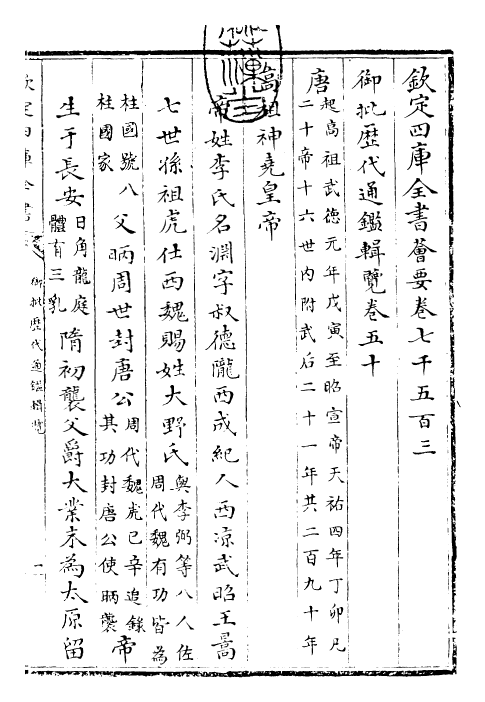 欽定四庫全書薈要卷七千五百三
御批歷代通鑑輯覽卷五十
唐起高祖武德元年戊寅至昭宣帝天祐四年丁卯凡
二十帝十六世内附武后二十一年共二百九十年
高祖神堯皇帝
帝姓李氏名淵字叔德隴西成紀人西涼武昭王暠
七世孫祖虎仕西魏賜姓大野氏與李弼等八人佐
周代魏有功皆為
柱國號八
柱國家
父昞周世封唐公周代魏虎已辛追錄
其功封唐公使昞襲
帝
生于長安日角龍庭
體有三乳
隋初襲父爵大業末為太原留
欽定四庫全書
御批歷代通鑑輯覽